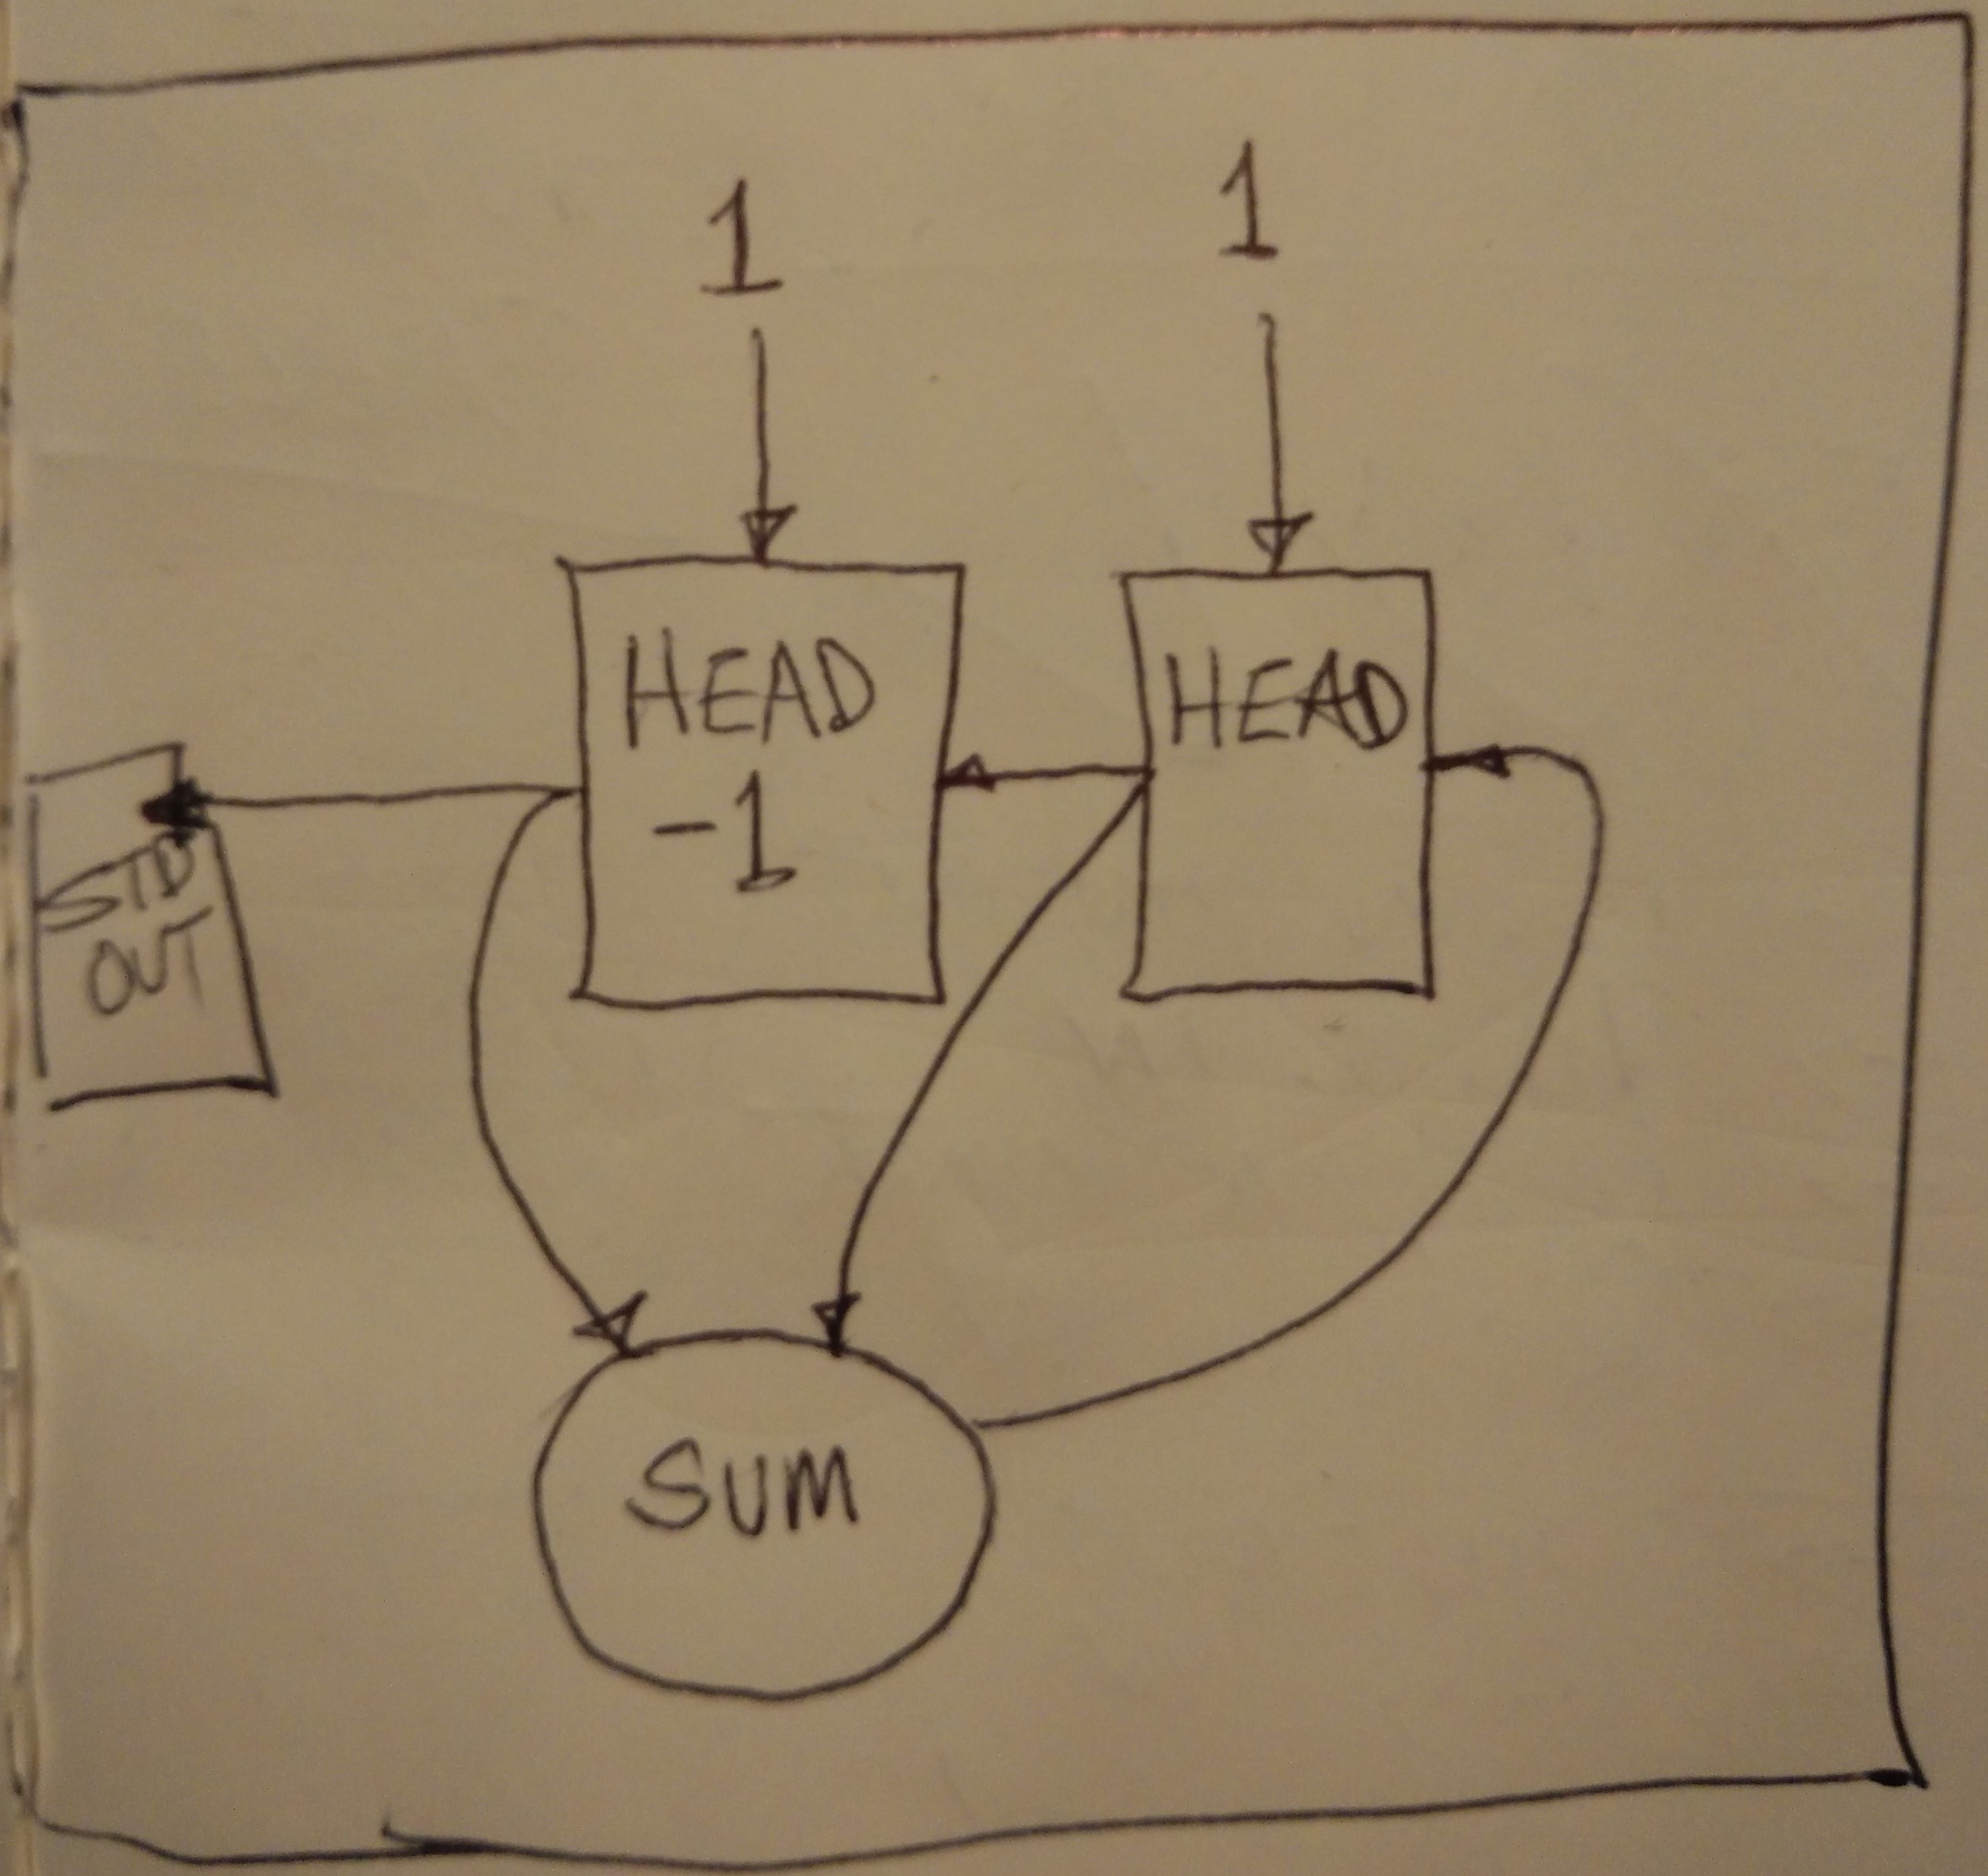 1
1
HEAD
-1
HEAD
STD
OUT
SUM